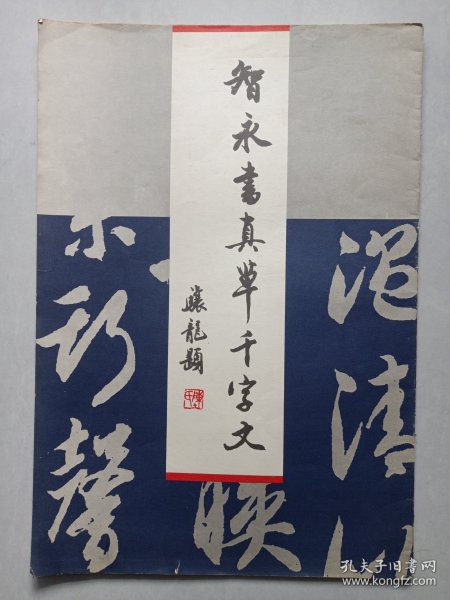 智永書真草千字文
驤龍題
温清
映
斯馨
孔夫子旧书网
www.kongfz.com